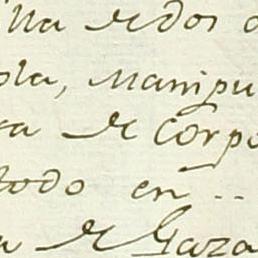 illa de dos
ola, Manipu
ra de Corpo
todo en ..
a de Gaza